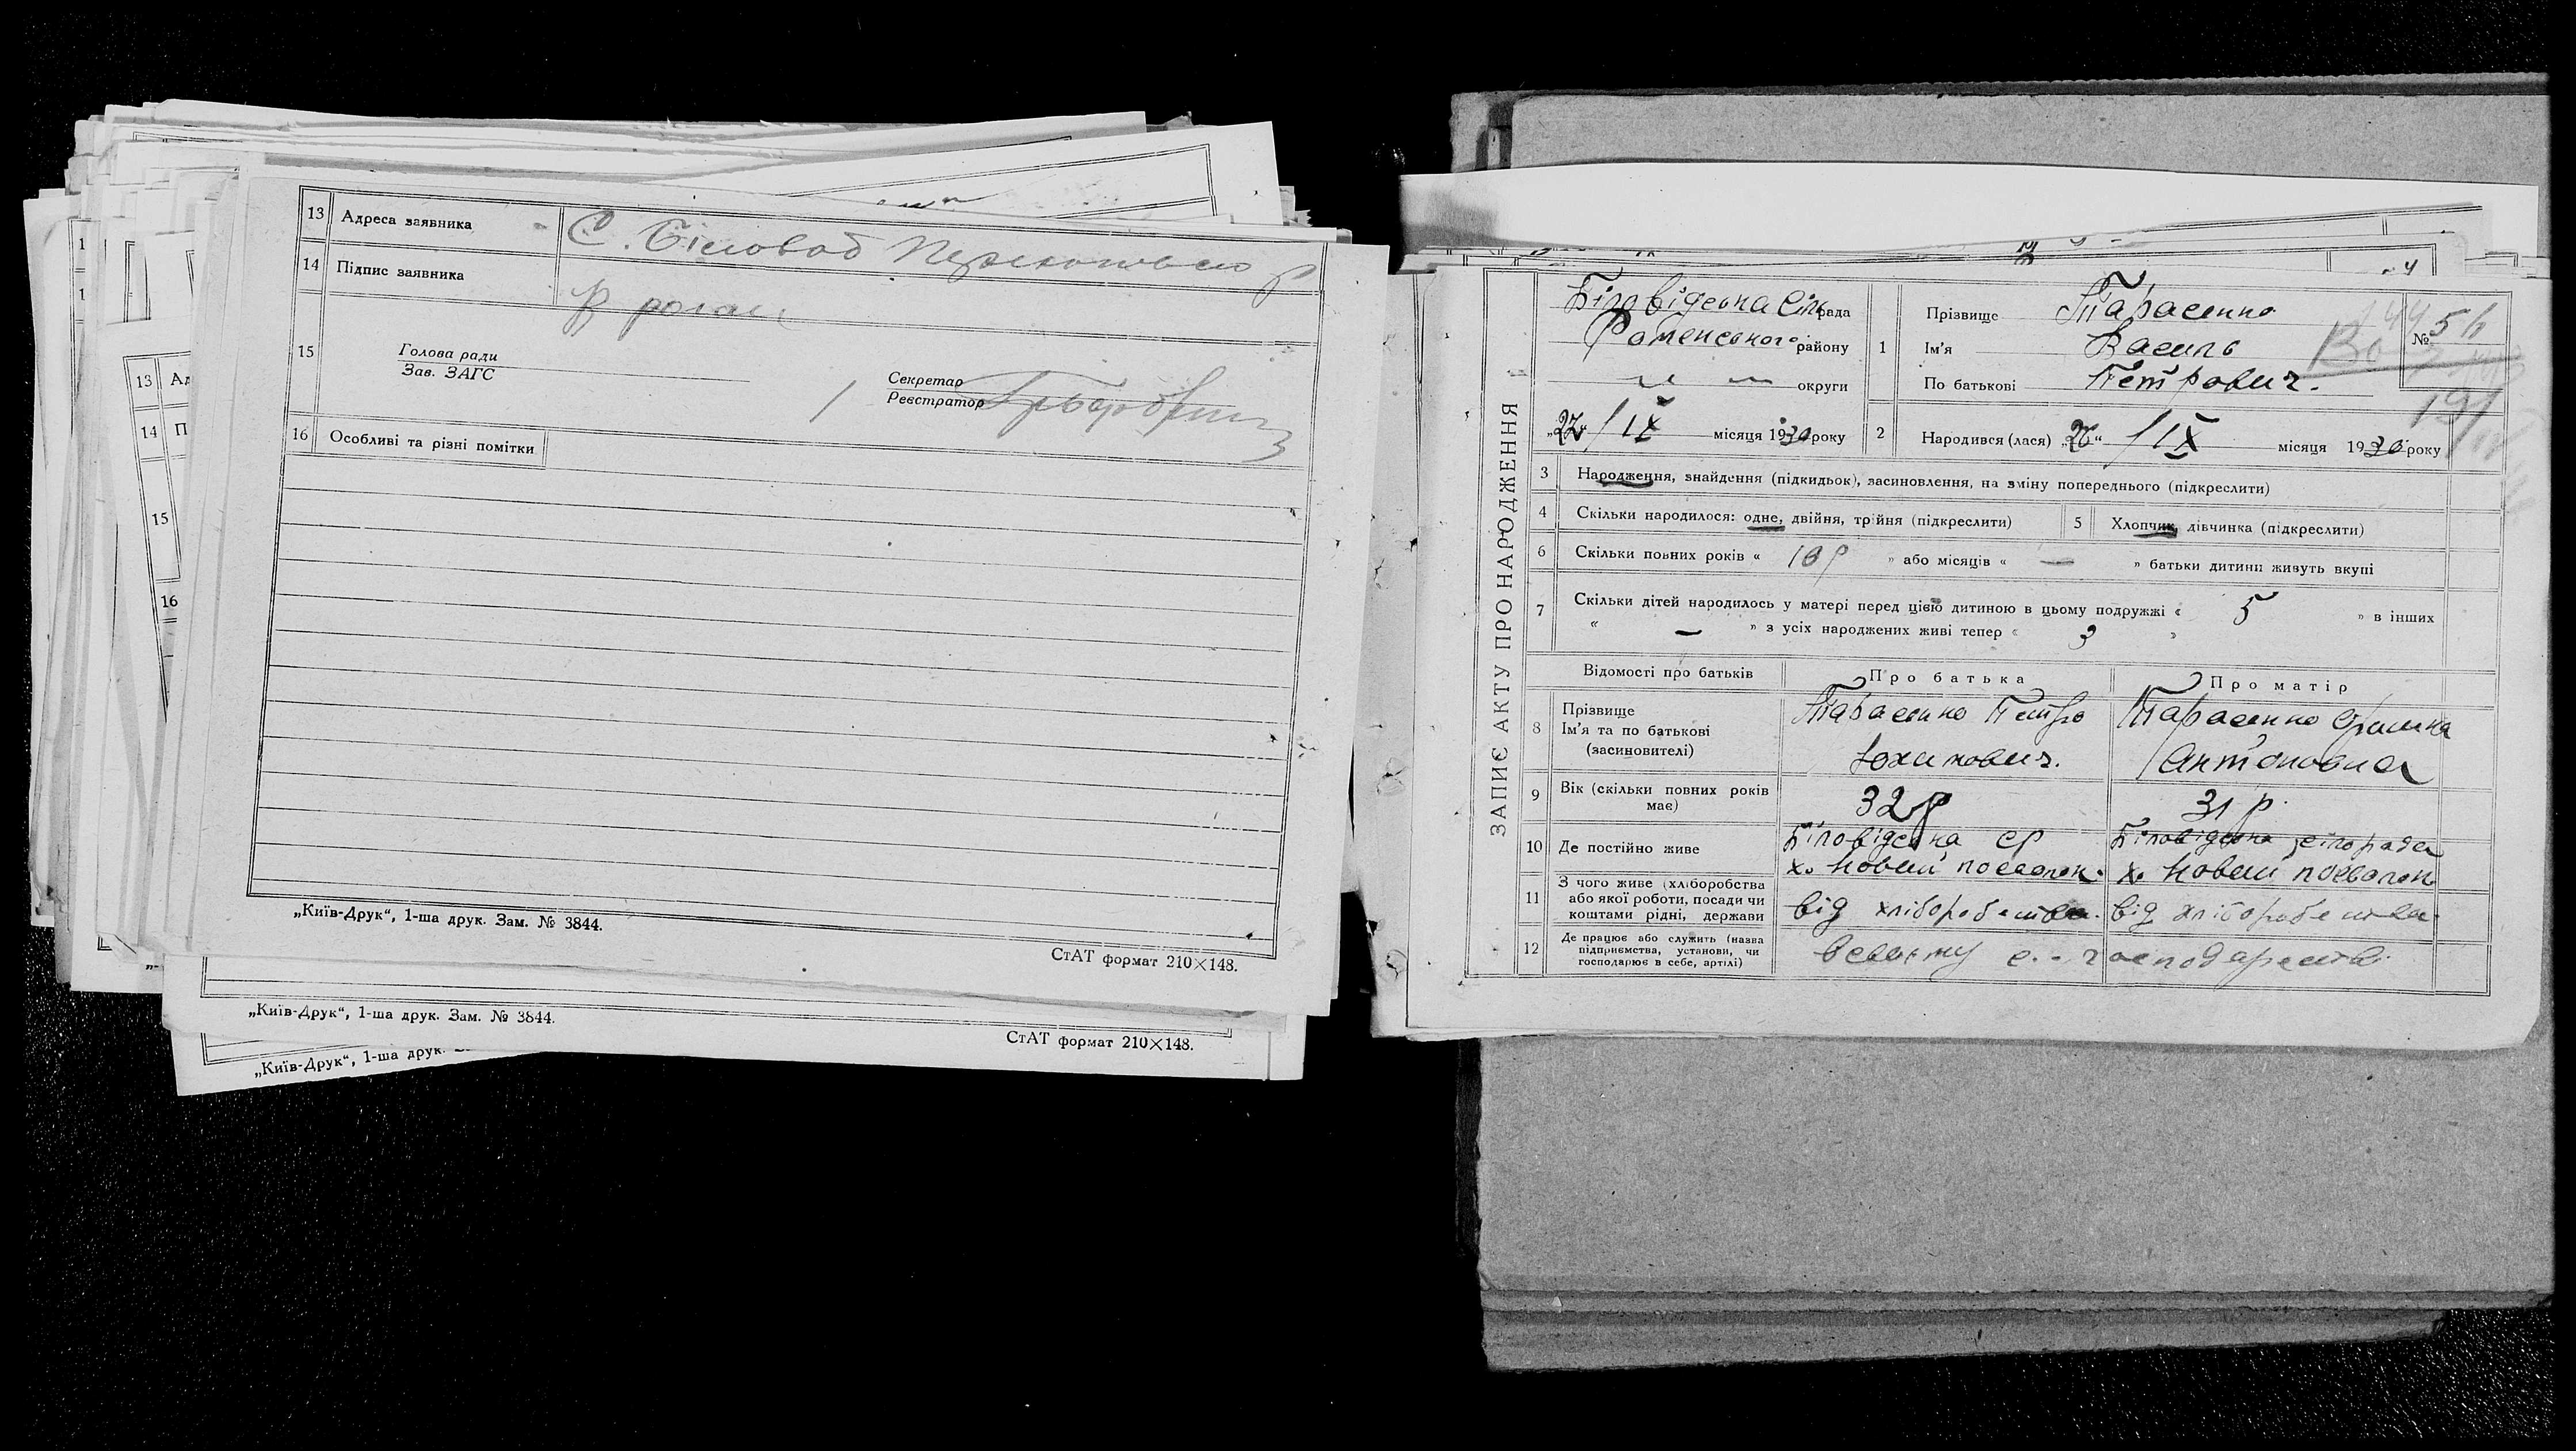 13 Адреса заявника С. Біловод
14 Підпис заявника
15 Голова ради
Зав. ЗАГС
Секретар
Реєстратор
16 Особливі та різні помітки
„Київ-Друк“, 1-ша друк. Зам. № 3844.
СтАТ формат 210×148.
13
14 П
15
16
„Київ-Друк“, 1-ша друк. Зам. № 3844.
СтАТ формат 210×148.
„Київ-Друк“, 1-ша друк.
ЗАПИС АКТУ ПРО НАРОДЖЕННЯ
Біловідська Сільрада
Роменського району
округи
„27“ / IX місяця 1930 року
1 Прізвище Тарасенко
Ім'я Василь
По батькові Петрович.
№ 56
2 Народився (лася) „26“ / IX місяця 1930 року
3 Народження, знайдення (підкидьок), засиновлення, на зміну попереднього (підкреслити)
4 Скільки народилося: одне, двійня, трійня (підкреслити) 5 Хлопчик, дівчинка (підкреслити)
6 Скільки повних років « 10 р » або місяців « — » батьки дитини живуть вкупі
7 Скільки дітей народилось у матері перед цією дитиною в цьому подружжі « 5 » в інших
« — » з усіх народжених живі тепер « 3 »
Відомості про батьків Про батька Про матір
8 Прізвище
Ім'я та по батькові
(засиновителі)
Тарасенко Петро
Юхимович.
Тарасенко
Антоновна
9 Вік (скільки повних років має) 32 р 31 р.
10 Де постійно живе
Біловідська ср
х. Новий посьолок.
Біловідська сілрада
х. Новий посьолок
11 З чого живе (хліборобства
або якої роботи, посади чи
коштами рідні, держави
від хліборобства. від хліборобства.
12 Де працює або служить (назва
підприємства, установи, чи
господарює в себе, артілі)
в своєму с. - господарстві.